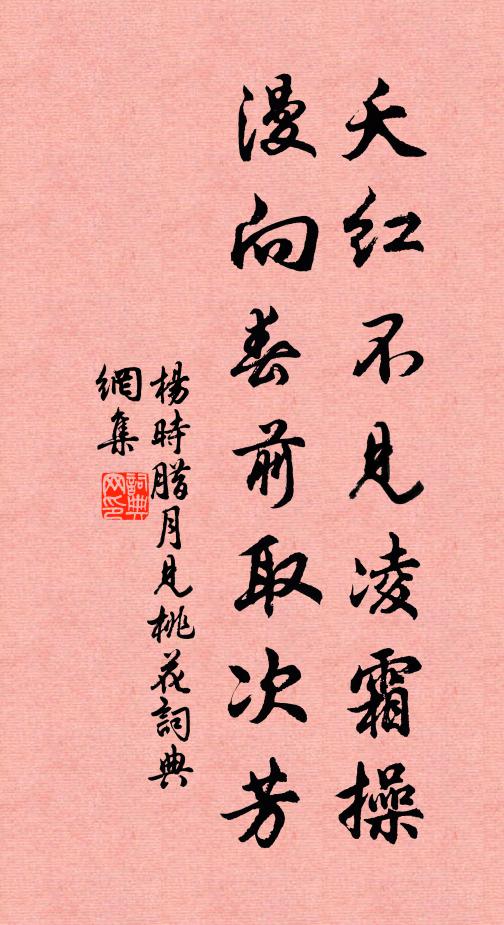 夭红不见凌霜操
漫向春前取次芳
楊時腊月見桃花詞典
網集
詞典
网印